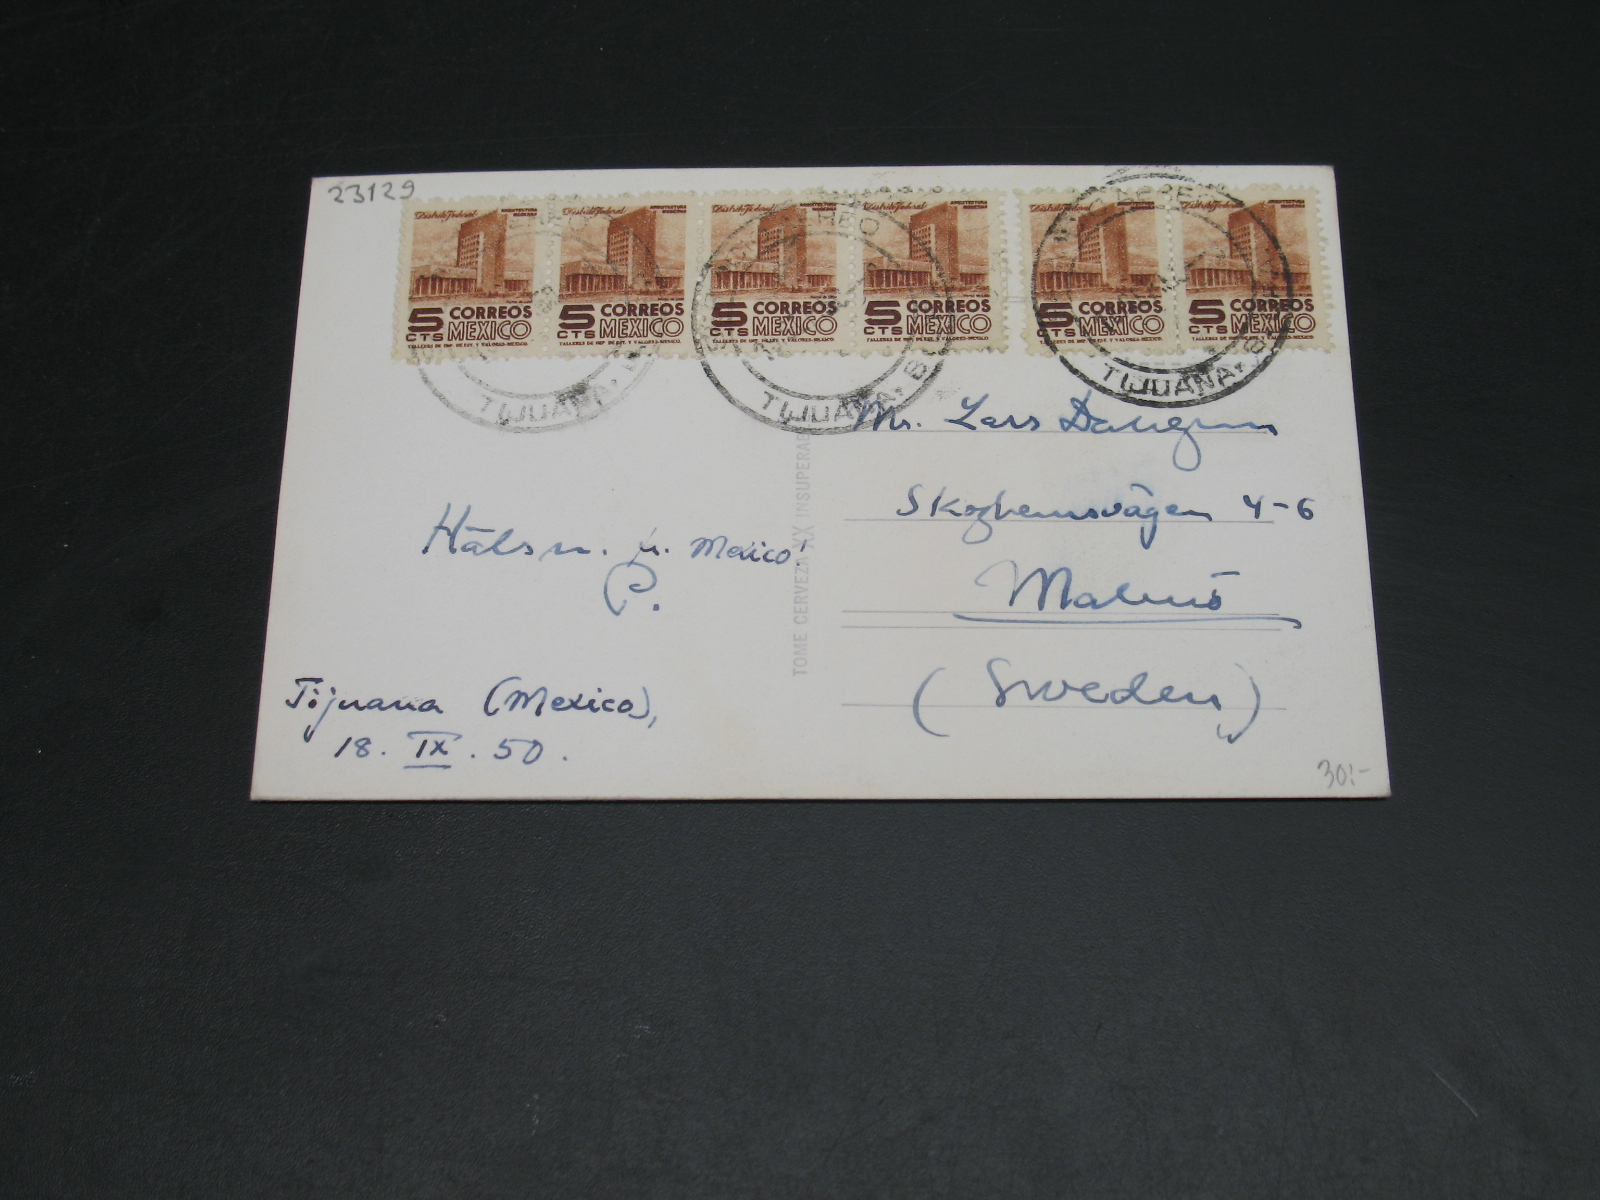 23129
Distrito Federal ARQUITECTURA MODERNA
5 CTS CORREOS MEXICO
TALLERES DE IMP. DE EST. Y VALORES-MEXICO.
Distrito Federal ARQUITECTURA MODERNA
5 CTS CORREOS MEXICO
TALLERES DE IMP. DE EST. Y VALORES-MEXICO.
Distrito Federal ARQUITECTURA MODERNA
5 CTS CORREOS MEXICO
TALLERES DE IMP. DE EST. Y VALORES-MEXICO.
Distrito Federal ARQUITECTURA MODERNA
5 CTS CORREOS MEXICO
TALLERES DE IMP. DE EST. Y VALORES-MEXICO.
Distrito Federal ARQUITECTURA MODERNA
5 CTS CORREOS MEXICO
TALLERES DE IMP. DE EST. Y VALORES-MEXICO.
Distrito Federal ARQUITECTURA MODERNA
5 CTS CORREOS MEXICO
TALLERES DE IMP. DE EST. Y VALORES-MEXICO.
TIJUANA, B
TIJUANA, B
TIJUANA, B
Hälsn. fr. Mexico!
P.
Tijuana (Mexico),
18. IX. 50.
TOME CERVEZA XX INSUPERAB
Mr. Lars
Skoghemsvägen 4-6
Malmö
(Sweden)
30:-